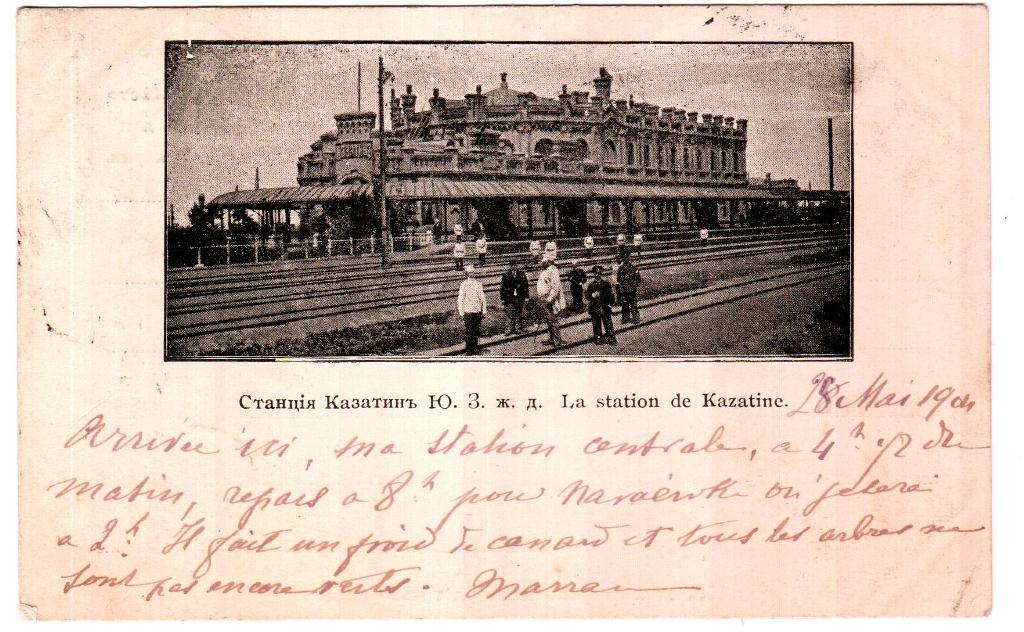 Станція Казатинъ Ю. З. ж. д. La station de Kazatine.
28 Mai 1901
Arrivée ici, ma station centrale, a 4h 1/2 du
matin, repars a 8h pour où je serai
a 2h. Il fait un froid de canard et tous les arbres ne
sont pas encore verts.